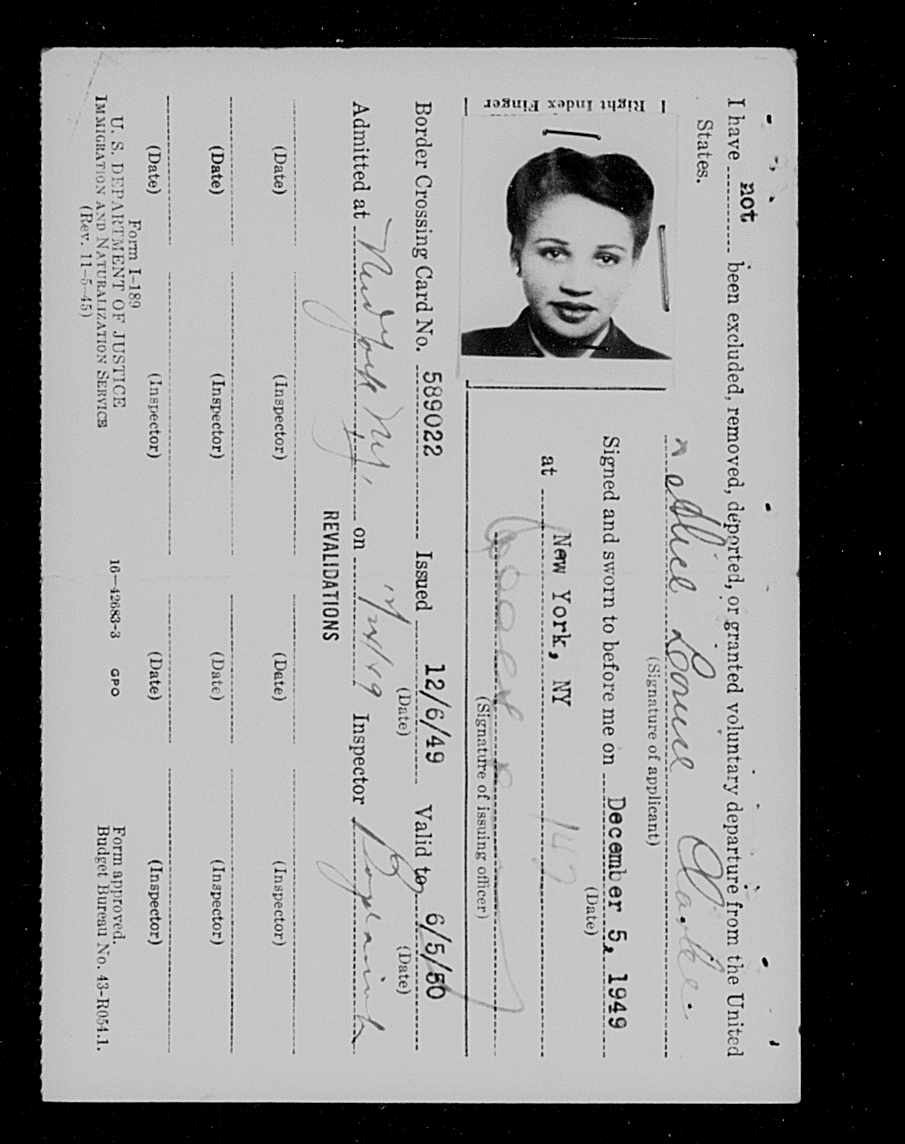 I have not been excluded, removed, deported, or granted voluntary departure from the United
States.
Alice Louise Clarke
(Signature of applicant)
Right Index Finger
Signed and sworn to before me on December 5, 1949
(Date)
at New York, NY
147
(Signature of issuing officer)
Border Crossing Card No. 589022 Issued 12/6/49 Valid to 6/5/50
(Date) (Date)
Admitted at New York NY, on 12/24/49 Inspector
REVALIDATIONS
(Date) (Inspector) (Date) (Inspector)
(Date) (Inspector) (Date) (Inspector)
(Date) (Inspector) (Date) (Inspector)
Form I-189
U. S. DEPARTMENT OF JUSTICE
IMMIGRATION AND NATURALIZATION SERVICE
(Rev. 11-5-45)
16—42683-3 GPO
Form approved.
Budget Bureau No. 43-R054.1.